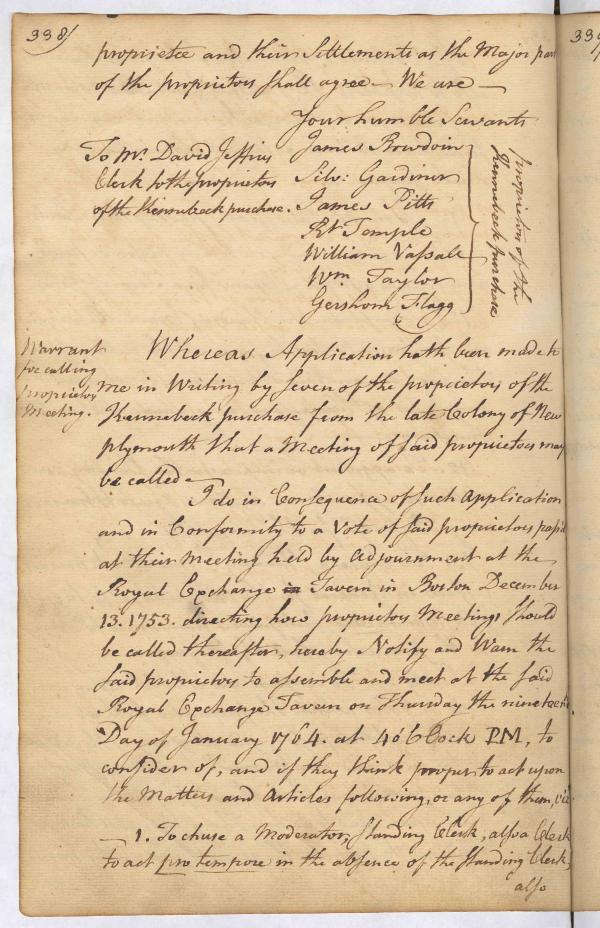 338/
proprietee and their Settlements as the Major part
of the proprietors shall agree — We are —
Your humble Servants
To Mr. David Jeffries
Clerk to the proprietors
of the Kennebeck purchase.
James Bowdoin
Silv: Gardiner
James Pitts
Rt Temple
William Vassall
Wm Taylor
Gershom Flagg
proprietors of the
Kennebeck purchase
Warrant
for calling
proprietors
Meeting.
Whereas Application hath been made to
me in Writing by seven of the proprietors of the
Kennebeck purchase from the late Colony of New
plymouth that a Meeting of said proprietors may
be called —
I do in Consequence of such Application
and in Conformity to a Vote of said proprietors pass'd
at their Meeting held by Adjournment at the
Royal Exchange in Tavern in Boston December
13. 1753. directing how proprietors Meetings should
be called thereafter, hereby Notify and Warn the
said proprietors to assemble and meet at the said
Royal Exchange Tavern on Thursday the nineteenth
Day of January 1764. at 4 o'Clock P.M, to
consider of, and if they think proper to act upon
the Matters and Articles following, or any of them, viz
— 1. To chuse a Moderator, Standing Clerk, also a Clerk
to act pro tempore in the absence of the Standing Clerk,
also